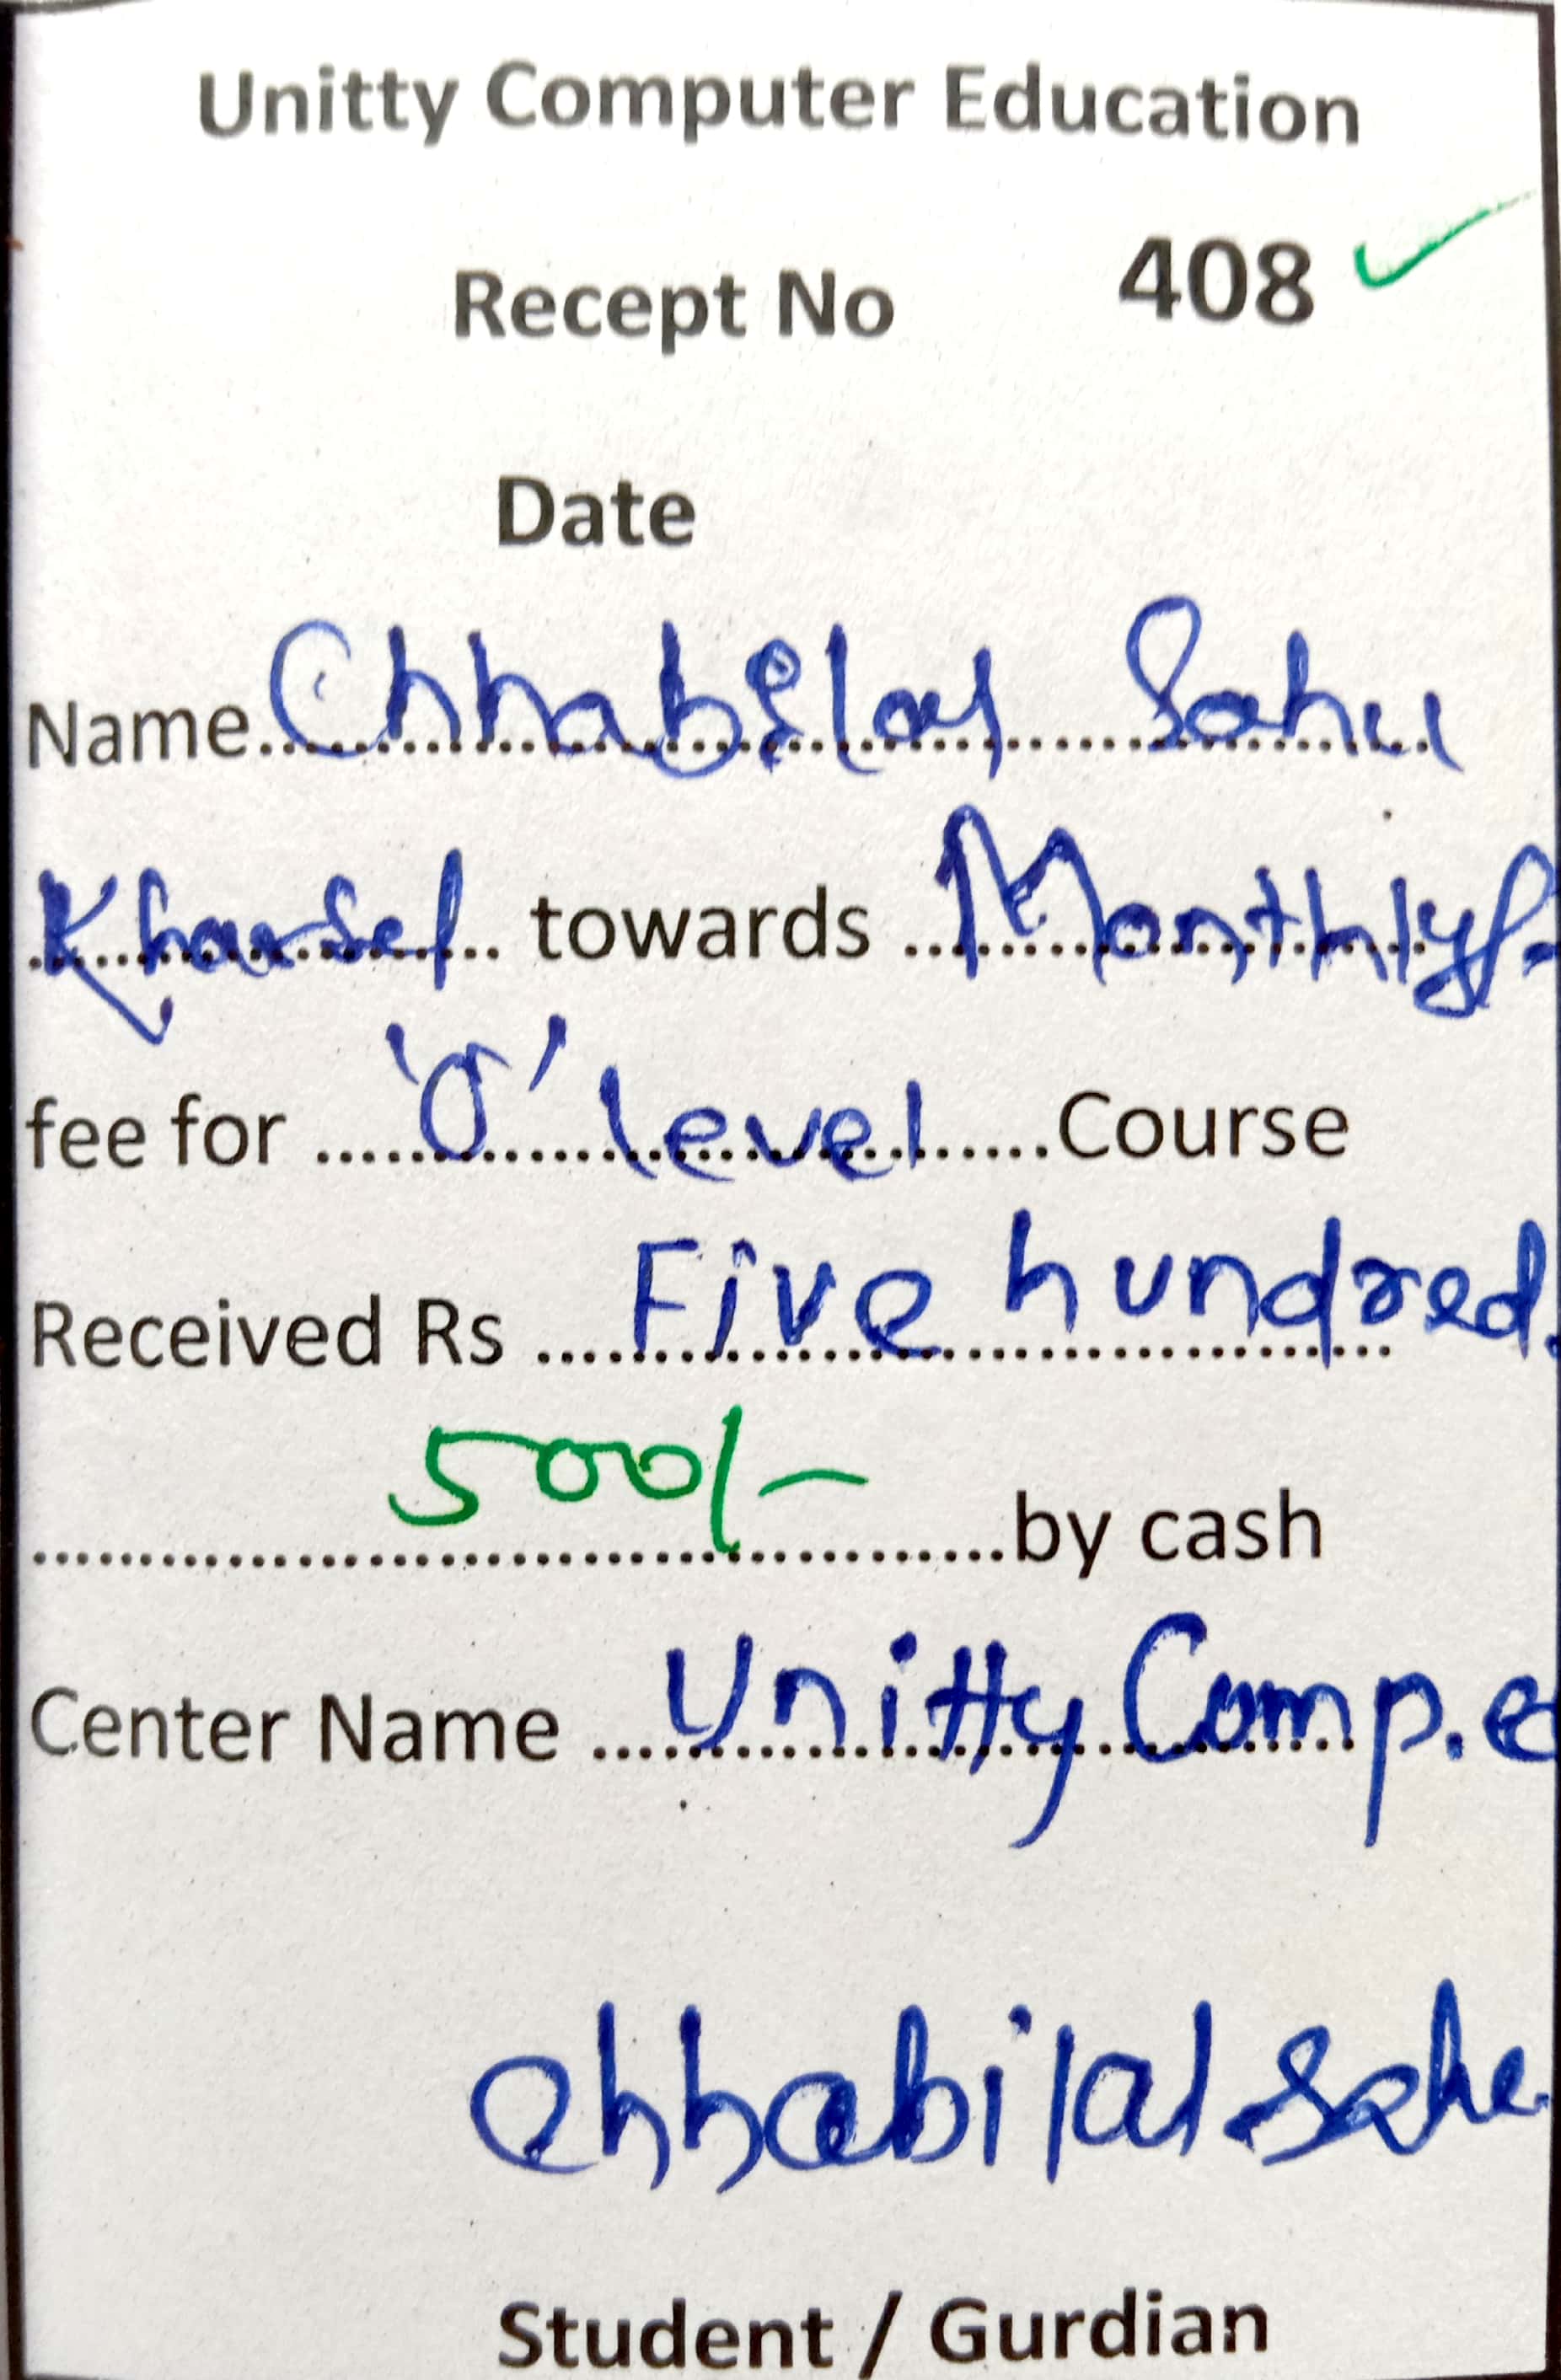 Unitty Computer Education
Recept No 408
Date
Name Chhabilal Sahu
Kharsel towards Monthly
fee for 'O' level Course
Received Rs Five hundred.
500/- by cash
Center Name Unitty Comp. e
Chhabilal Sahu
Student / Gurdian